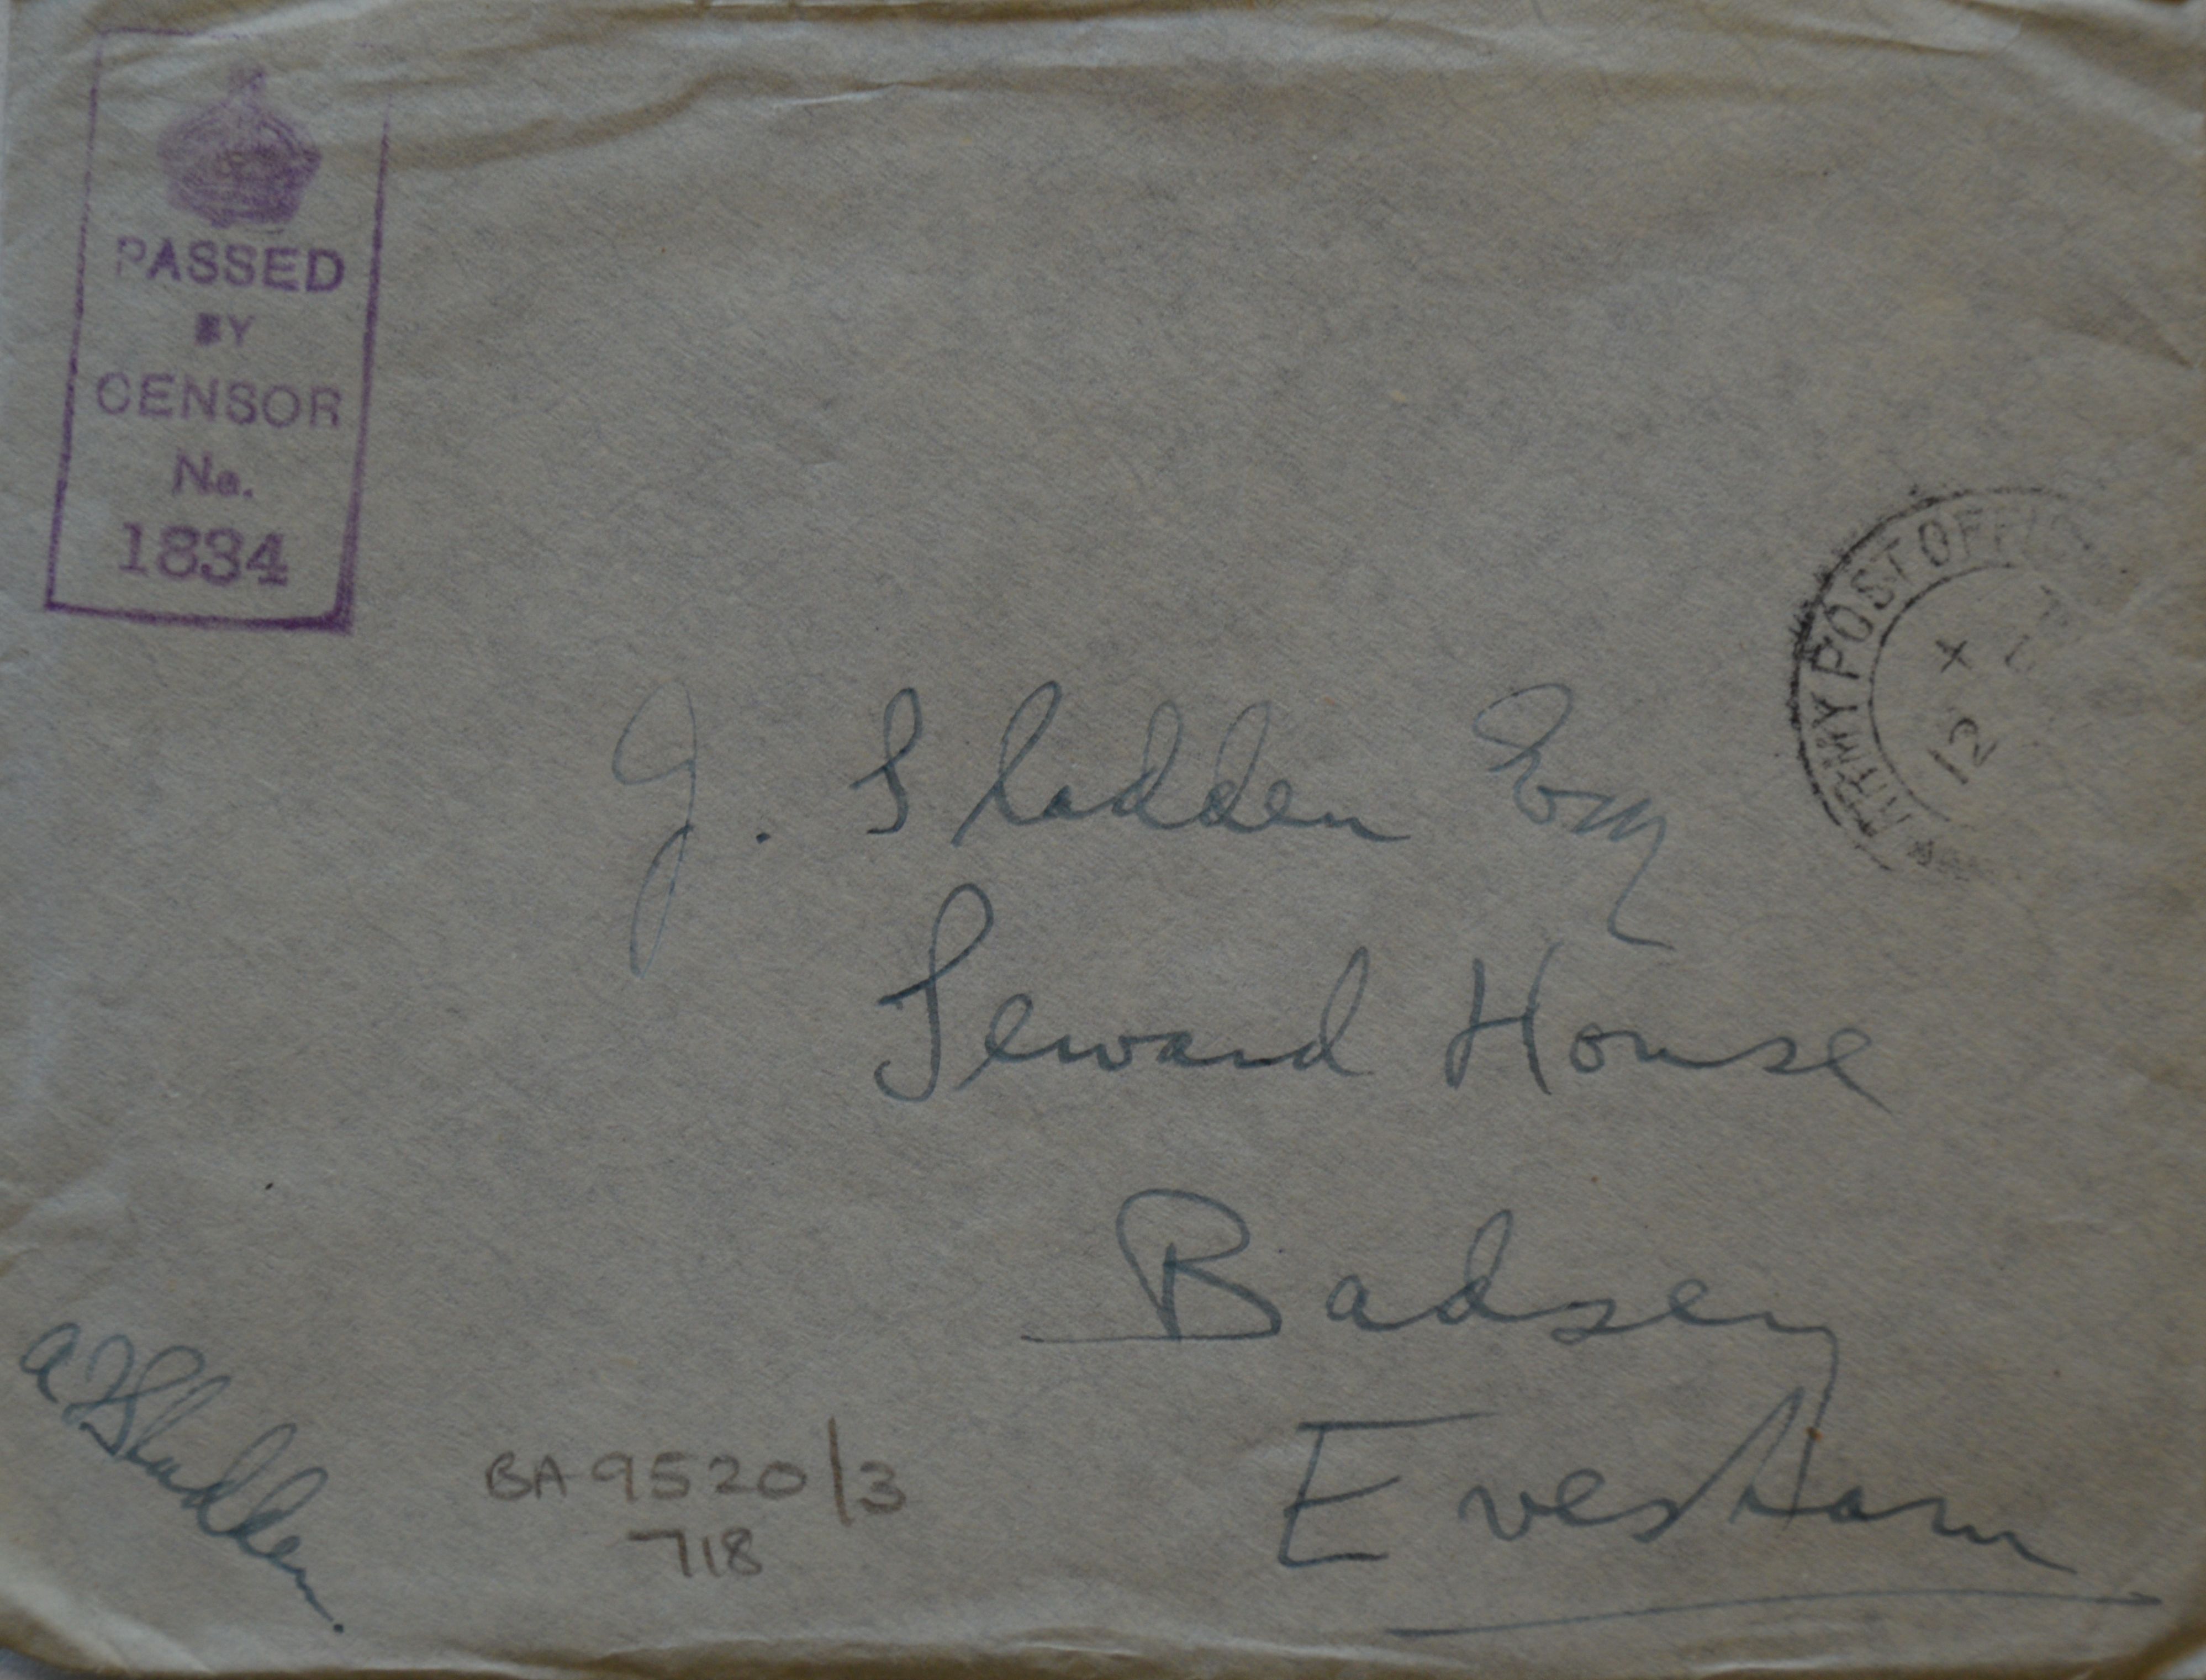 PASSED
BY
CENSOR
No.
1834
ARMY POST OFFICE
X
12
J. Sladden Esq
Seward House
Badsey
Evesham
A F Sladden.
BA 9520/3
718